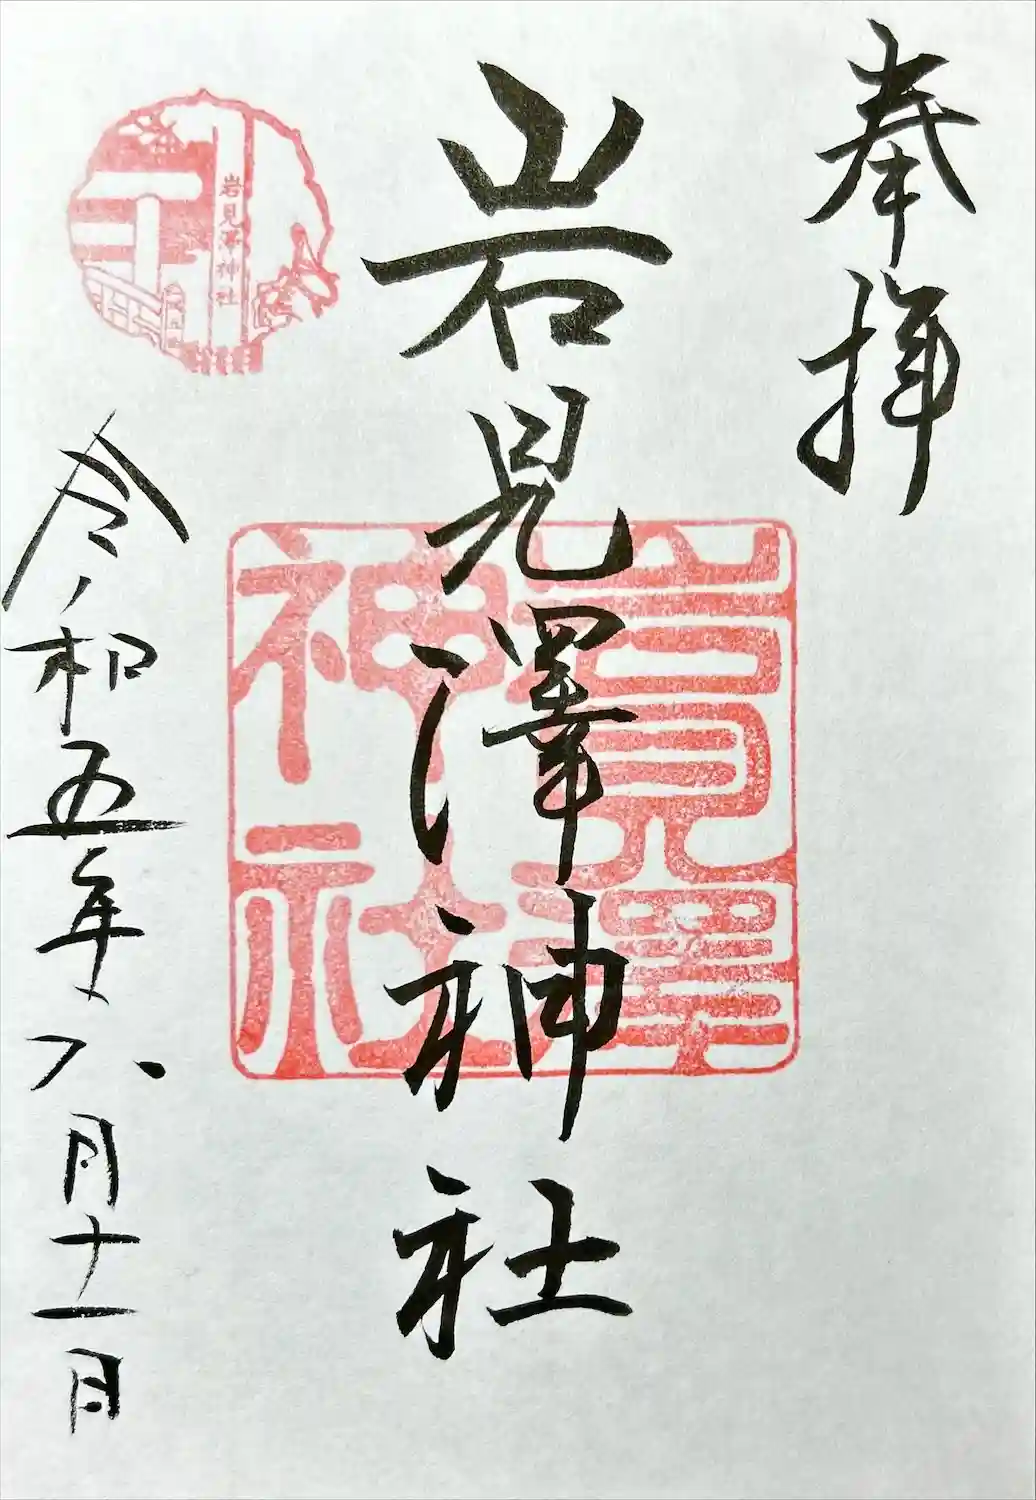 奉拝
岩見澤神社
岩見澤神社
岩見澤神社
令和五年六月十一日